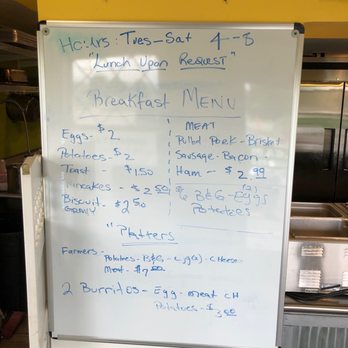 Hours: Tues-Sat 4-8
"Lunch Upon Request"
Breakfast MENU
Eggs - $2
Potatoes - $2
Toast - $1.50
Pancakes - $2.50
Biscuit - $2.50
Gravy
MEAT
Pulld Pork - Brisket
Sausage - Bacon -
Ham - $2.99
$6 B&G - Eggs (2)
Potatoes
"Platters
Farmers -
Potatoes - B&G - Egg(2) - Cheese
Meat - $7.00
2 Burritos - Egg - meat CH
Potatoes - $3.00